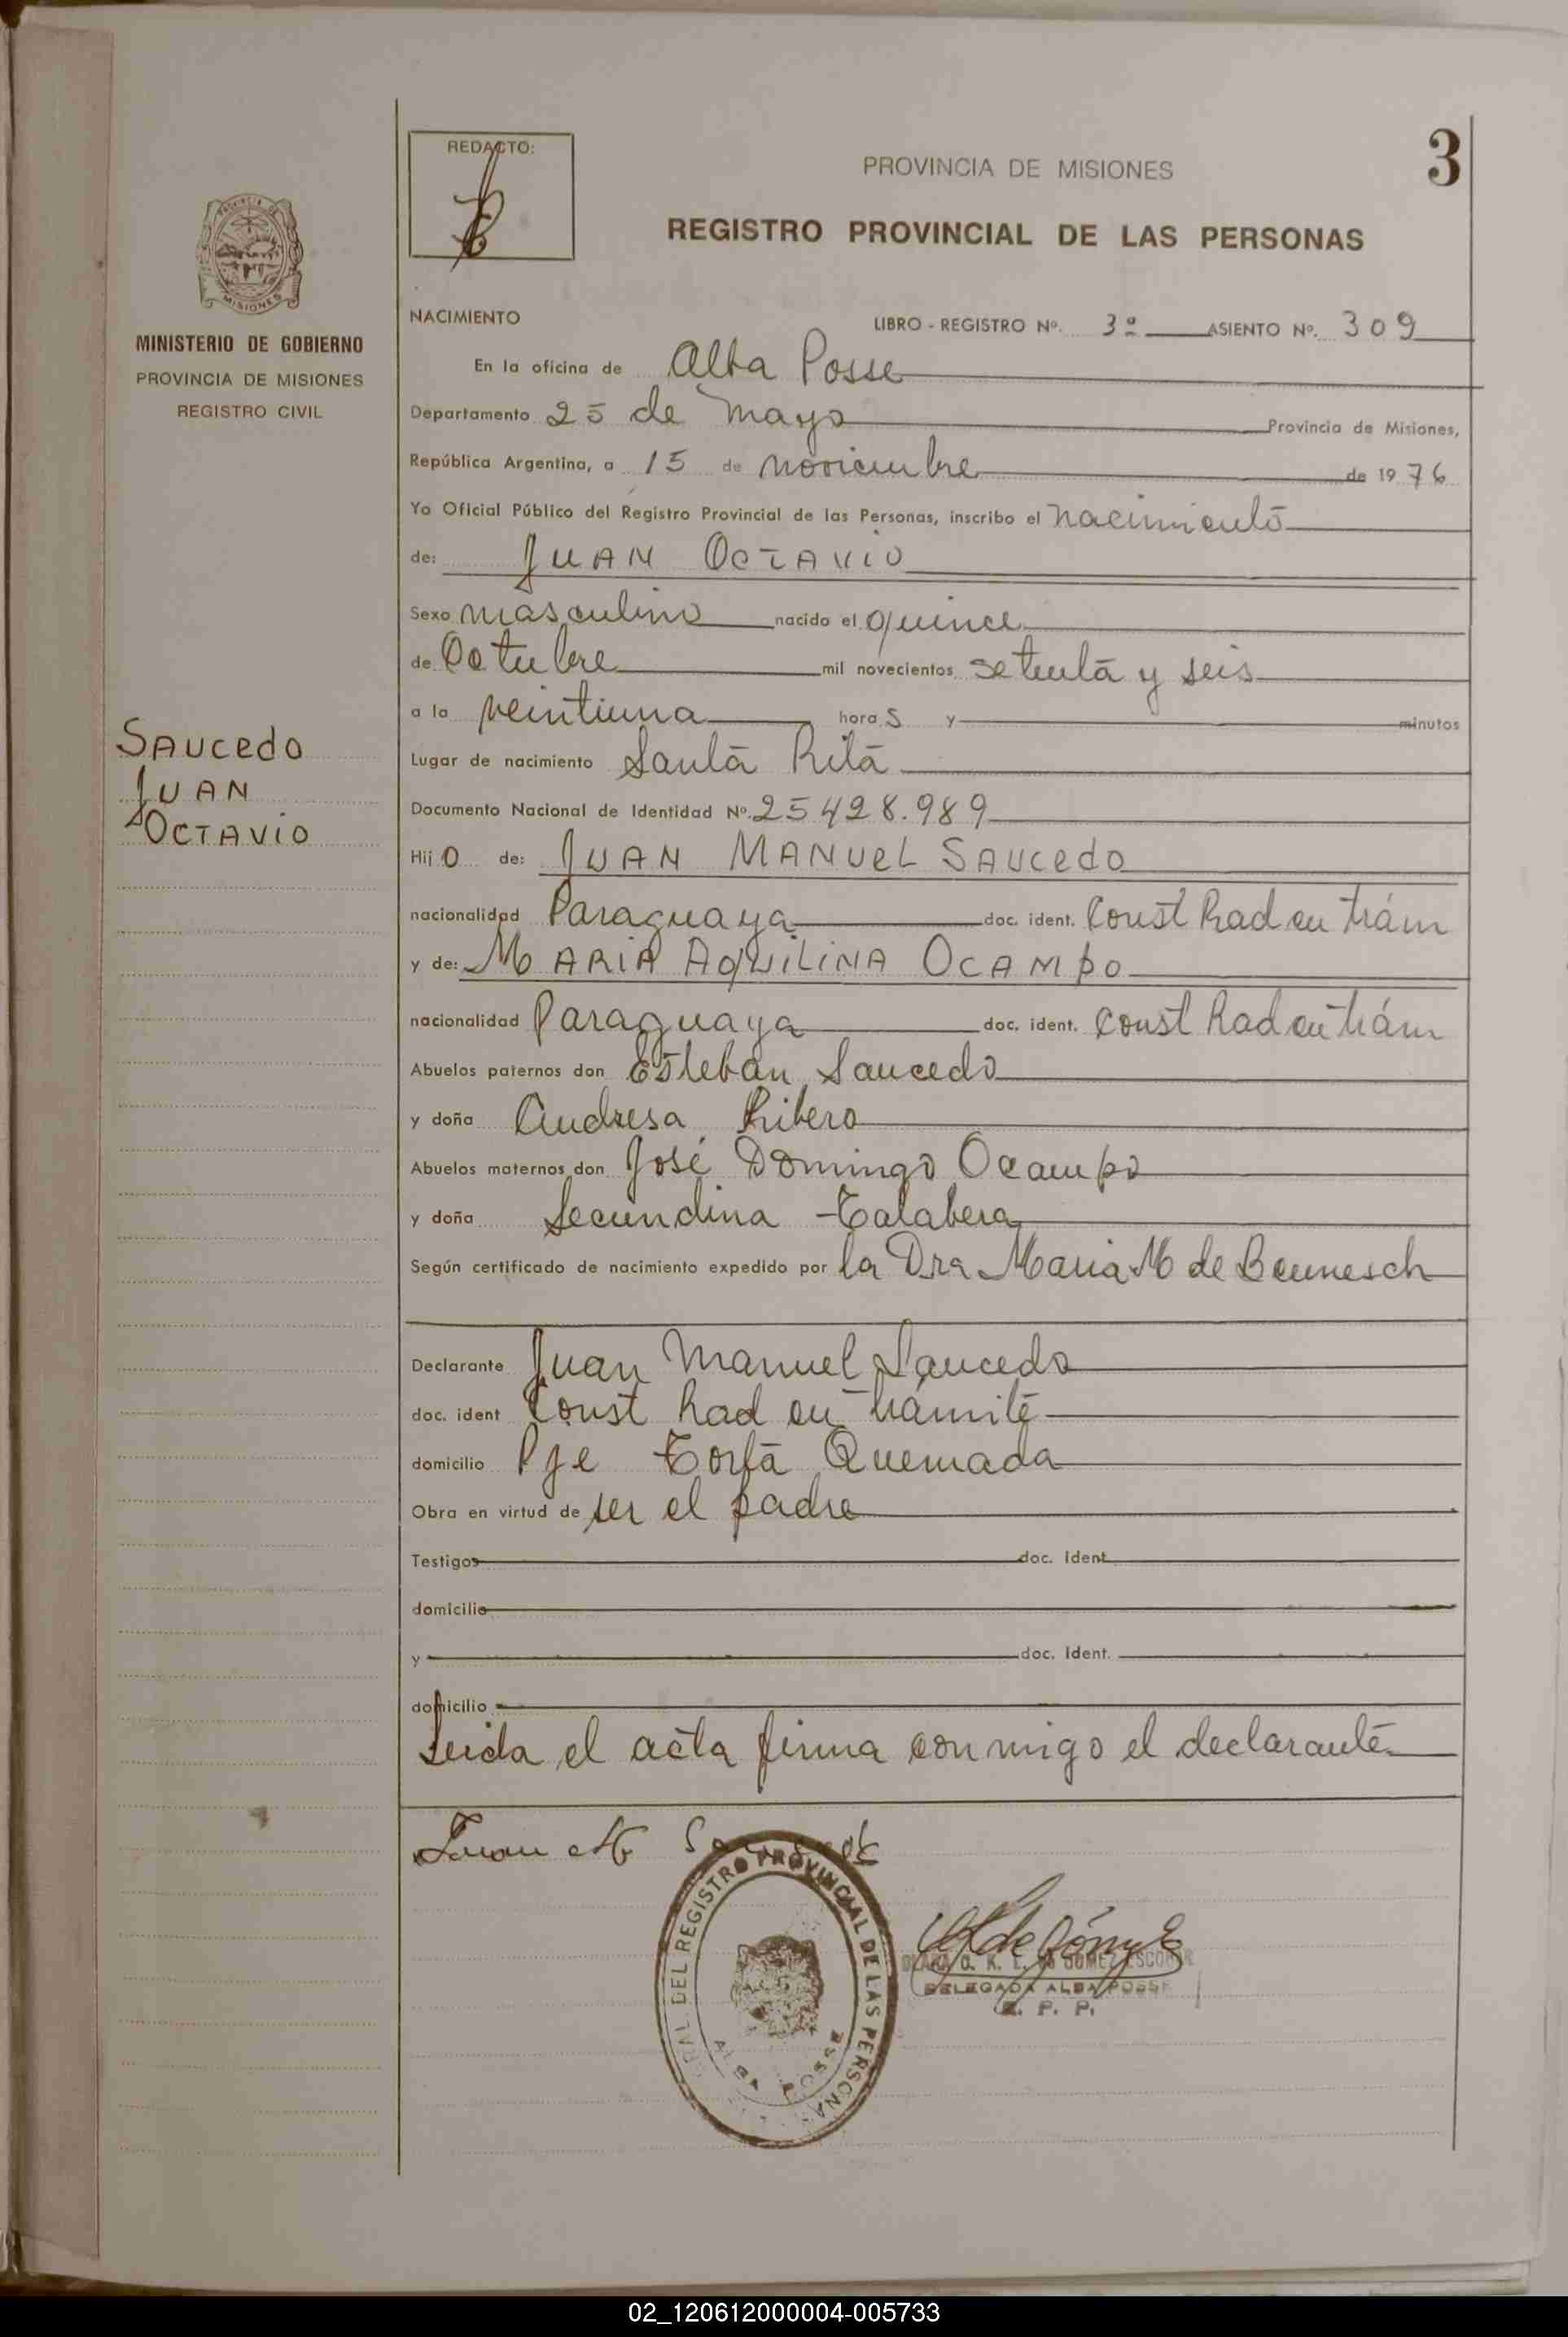 REDACTO:
PROVINCIA DE MISIONES
3
REGISTRO PROVINCIAL DE LAS PERSONAS
MISIONES
MINISTERIO DE GOBIERNO
PROVINCIA DE MISIONES
REGISTRO CIVIL
NACIMIENTO
LIBRO - REGISTRO Nº. 3º ASIENTO Nº. 309
En la oficina de Alba Posse
Departamento 25 de Mayo Provincia de Misiones,
República Argentina, a 15 de noviembre de 1976
Yo Oficial Público del Registro Provincial de las Personas, inscribo el nacimiento
de: JUAN OCTAVIO
Sexo masculino nacido el quince
de Octubre mil novecientos setenta y seis
a la veintiuna horas y minutos
Lugar de nacimiento Santa Rita
Documento Nacional de Identidad Nº. 25428.989
SAUCEDO
JUAN
OCTAVIO
Hijo de: JUAN MANUEL SAUCEDO
nacionalidad Paraguaya doc. ident. Const Rad en trám
y de: MARIA AQUILINA OCAMPO
nacionalidad Paraguaya doc. ident. Const Rad en trám
Abuelos paternos don Esteban Saucedo
y doña Andresa Ribero
Abuelos maternos don José Domingo Ocampo
y doña Secundina Talabera
Según certificado de nacimiento expedido por la Dra Maria M de
Declarante Juan Manuel Saucedo
doc. ident Const Rad en trámite
domicilio Pje Torta Quemada
Obra en virtud de ser el padre
Testigos doc. Ident
domicilio
y doc. Ident.
domicilio
Leida el acta firma conmigo el declarante
Juan M
DEL REGISTRO PROVINCIAL DE LAS PERSONAS
ALBA POSSE
DE GOMEZ ESCOBAR
DELEGADA ALBA POSSE
R. P. P.
02_120612000004-005733